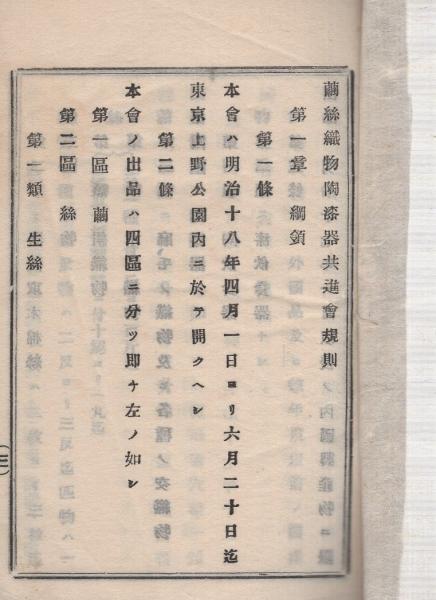 繭絲織物陶漆器共進會規則
第一章 綱領
第一條
本會ハ明治十八年四月一日ヨリ六月二十日迄
東京上野公園内ニ於テ開クヘシ
第二條
本會ノ出品ハ四區ニ分ツ即チ左ノ如シ
第一區 繭
第二區 絲
第一類 生絲